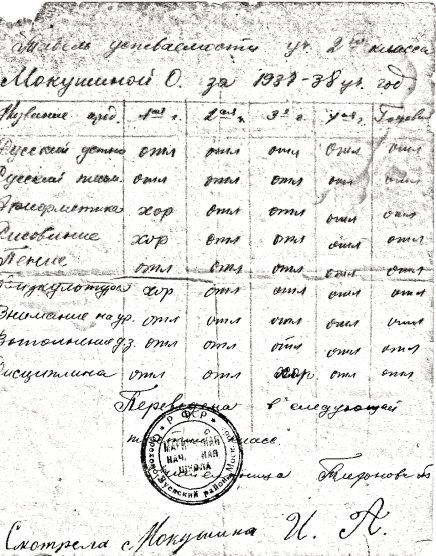 Табель успеваемости уч. 2го класса
Мокушиной О. за 1937-38 уч. год
Название пред. 1ая ч. 2ая ч. 3я ч. 4ая ч. Годовая
Русский устно отл отл отл отл отл
Русский письм. отл отл отл отл отл
Арифметика хор отл отл отл отл
Рисование хор отл отл отл отл
Пение отл отл отл отл отл
Физкультура хор отл отл отл отл
Внимание на ур. отл отл отл отл отл
Выполнение д.з. отл отл отл отл отл
Дисциплина отл отл хор. отл отл
Переведена в следующий
класс.
РСФСР
НАЧ.
ШКОЛА
район Моск.
Смотрела Мокушина И. П.